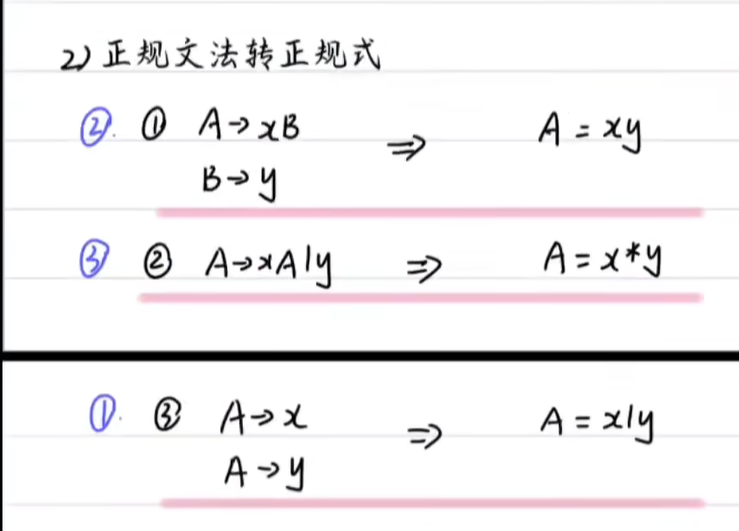 2) 正规文法转正规式
②. ① A→xB ⇒ A = xy
B→y
③ ② A→xA|y ⇒ A = x*y
①. ③ A→x ⇒ A = x|y
A→y